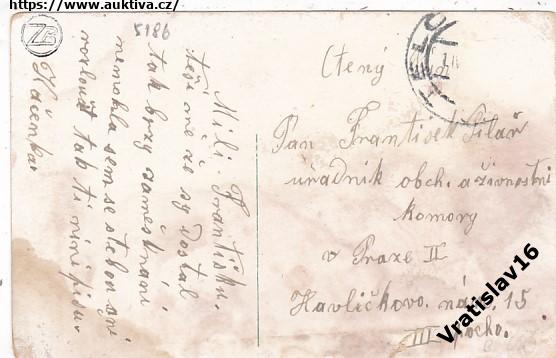 https://www.auktiva.cz/
ZB
5186
Milí Františku.
těší mě že sy dostal
tak brzy zaměstnání
nemohla sem se s tebou ani
rozloučit tak ti nini píšu
Háčenka
Ctěný pán
Pan František Pilař
úřadník obch. a živnostni
komory
v Praze II
Havlíčkovo. nám. 15
III poscho.
Vratislav16